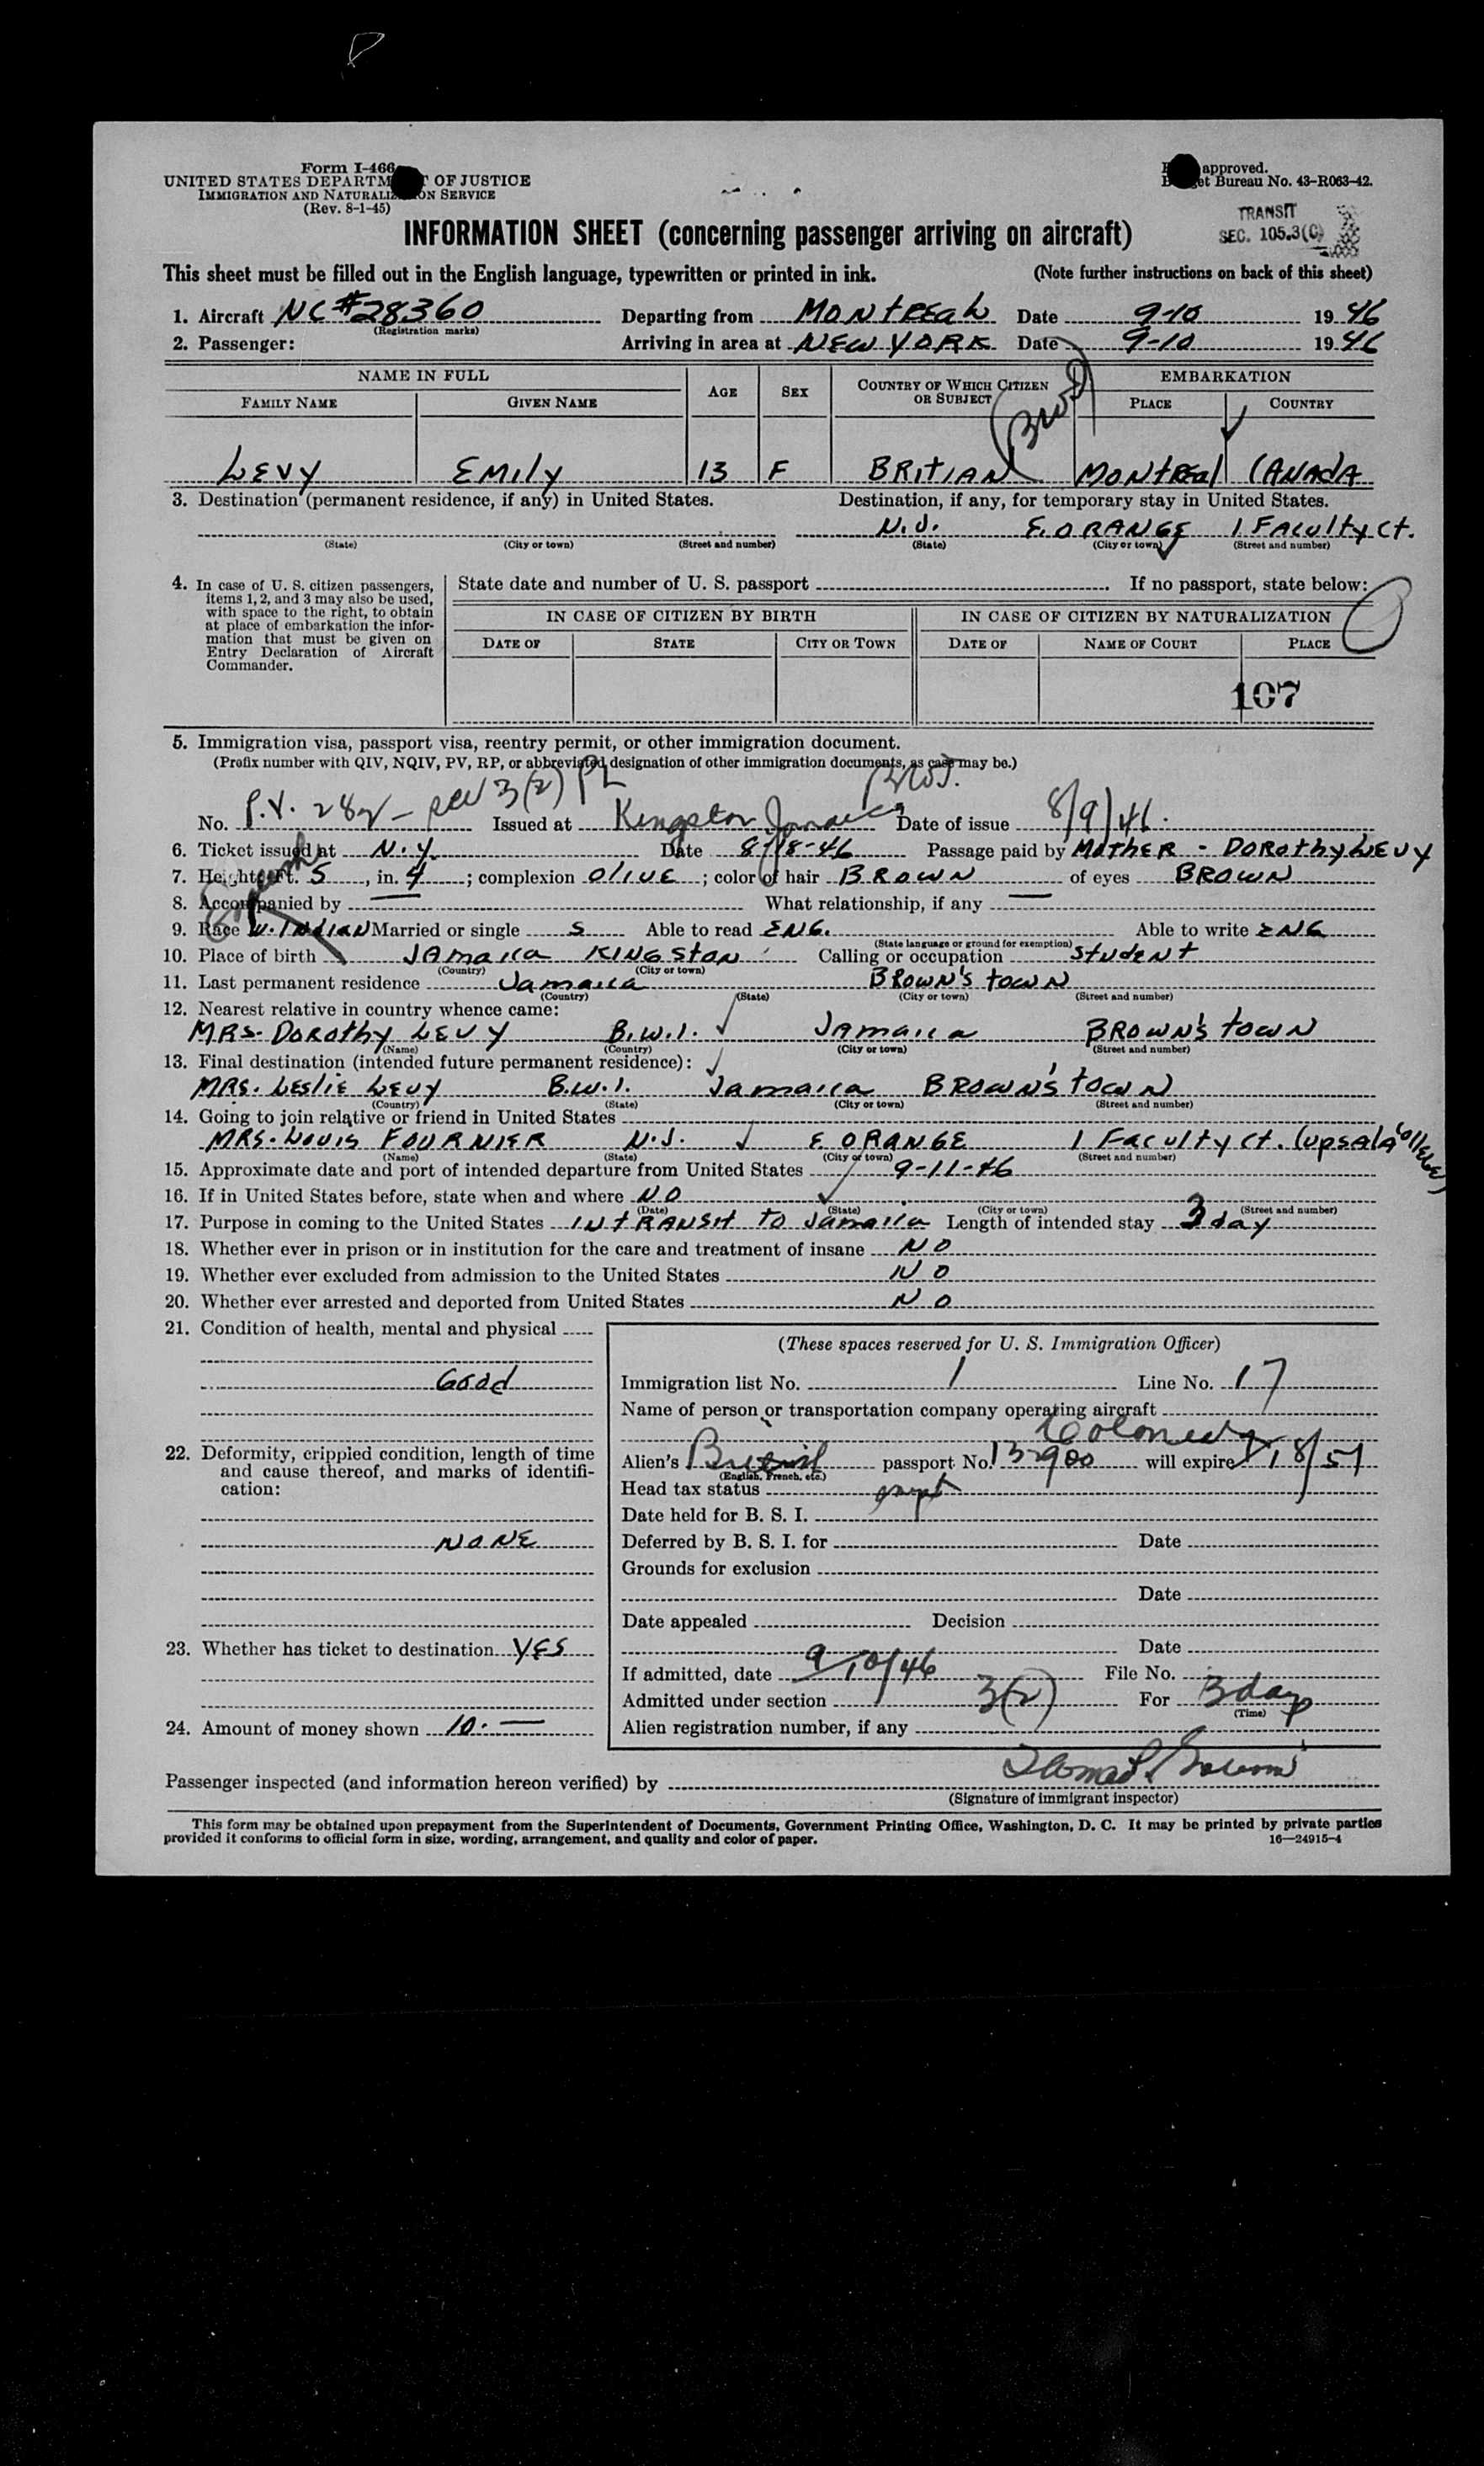 Form I-466
UNITED STATES DEPARTM T OF JUSTICE
IMMIGRATION AND NATURALIZ ON SERVICE
(Rev. 8-1-45)
approved.
et Bureau No. 43-R063-42.
TRANSIT
SEC. 105.3(C)
INFORMATION SHEET (concerning passenger arriving on aircraft)
This sheet must be filled out in the English language, typewritten or printed in ink. (Note further instructions on back of this sheet)
1. Aircraft NC#28360 Departing from MONTREAL Date 9-10 1946
(Registration marks)
2. Passenger: Arriving in area at NEW YORK Date 9-10 1946
NAME IN FULL AGE SEX COUNTRY OF WHICH CITIZEN OR SUBJECT EMBARKATION
FAMILY NAME GIVEN NAME PLACE COUNTRY
LEVY EMILY 13 F BRITIAN MONTREAL CANADA
3. Destination (permanent residence, if any) in United States. Destination, if any, for temporary stay in United States.
N.J. E. ORANGE 1 FACULTY CT.
(State) (City or town) (Street and number) (State) (City or town) (Street and number)
4. In case of U. S. citizen passengers, items 1, 2, and 3 may also be used, with space to the right, to obtain at place of embarkation the information that must be given on Entry Declaration of Aircraft Commander.
State date and number of U. S. passport If no passport, state below:
IN CASE OF CITIZEN BY BIRTH IN CASE OF CITIZEN BY NATURALIZATION
DATE OF STATE CITY OR TOWN DATE OF NAME OF COURT PLACE
107
5. Immigration visa, passport visa, reentry permit, or other immigration document.
(Prefix number with QIV, NQIV, PV, RP, or abbreviated designation of other immigration documents, as case may be.)
No. P.V. 282 - sec 3(2) PL Issued at Kingston Jamaica Date of issue 8/9/46.
6. Ticket issued at N.Y. Date 8-18-46 Passage paid by MOTHER - DOROTHY LEVY
7. Height, Ft. 5, in. 4; complexion OLIVE; color of hair BROWN of eyes BROWN
8. Accompanied by — What relationship, if any —
9. Race W. INDIAN Married or single S Able to read ENG. Able to write ENG
(State language or ground for exemption)
10. Place of birth JAMAICA KINGSTON Calling or occupation STUDENT
(Country) (City or town)
11. Last permanent residence JAMAICA BROWN'S TOWN
(Country) (State) (City or town) (Street and number)
12. Nearest relative in country whence came:
MRS. DOROTHY LEVY B.W.I. JAMAICA BROWN'S TOWN
(Name) (Country) (City or town) (Street and number)
13. Final destination (intended future permanent residence):
MRS. LESLIE LEVY B.W.I. JAMAICA BROWN'S TOWN
(Country) (State) (City or town) (Street and number)
14. Going to join relative or friend in United States
MRS. LOUIS FOURNIER N.J. E ORANGE 1 FACULTY CT. (UPSALA COLLEGE)
(Name) (State) (City or town) (Street and number)
15. Approximate date and port of intended departure from United States 9-11-46
16. If in United States before, state when and where NO
(Date) (State) (City or town) (Street and number)
17. Purpose in coming to the United States INTRANSIT TO JAMAICA Length of intended stay 3 day
18. Whether ever in prison or in institution for the care and treatment of insane NO
19. Whether ever excluded from admission to the United States NO
20. Whether ever arrested and deported from United States NO
21. Condition of health, mental and physical
GOOD
22. Deformity, crippled condition, length of time and cause thereof, and marks of identification:
NONE
23. Whether has ticket to destination YES
24. Amount of money shown 10. —
(These spaces reserved for U. S. Immigration Officer)
Immigration list No. 1 Line No. 17
Name of person or transportation company operating aircraft
Colonial
Alien's British passport No. will expire
(English, French, etc.)
Head tax status exempt
Date held for B. S. I.
Deferred by B. S. I. for Date
Grounds for exclusion
Date
Date appealed Decision
Date
If admitted, date 9/10/46 File No.
Admitted under section 3(2) For 3 days
(Time)
Alien registration number, if any
Passenger inspected (and information hereon verified) by
(Signature of immigrant inspector)
This form may be obtained upon prepayment from the Superintendent of Documents, Government Printing Office, Washington, D. C. It may be printed by private parties
provided it conforms to official form in size, wording, arrangement, and quality and color of paper. 16—24915-4